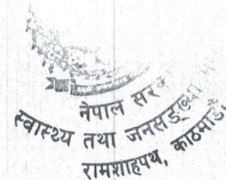 नेपाल सरक
स्वास्थ्य तथा जनसङ्ख्या
रामशाहपथ, काठमाडौं